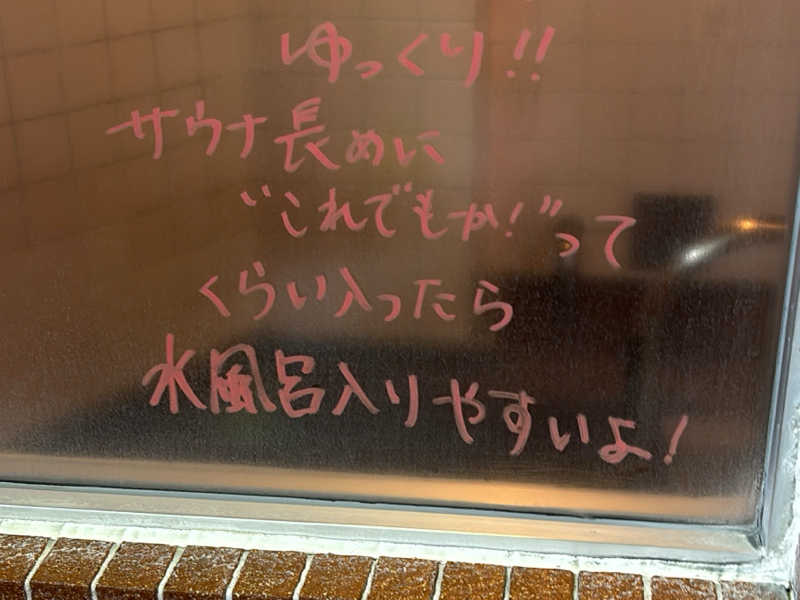 ゆっくり!!
サウナ長めに
"これでもか!"って
くらい入ったら
水風呂入りやすいよ!